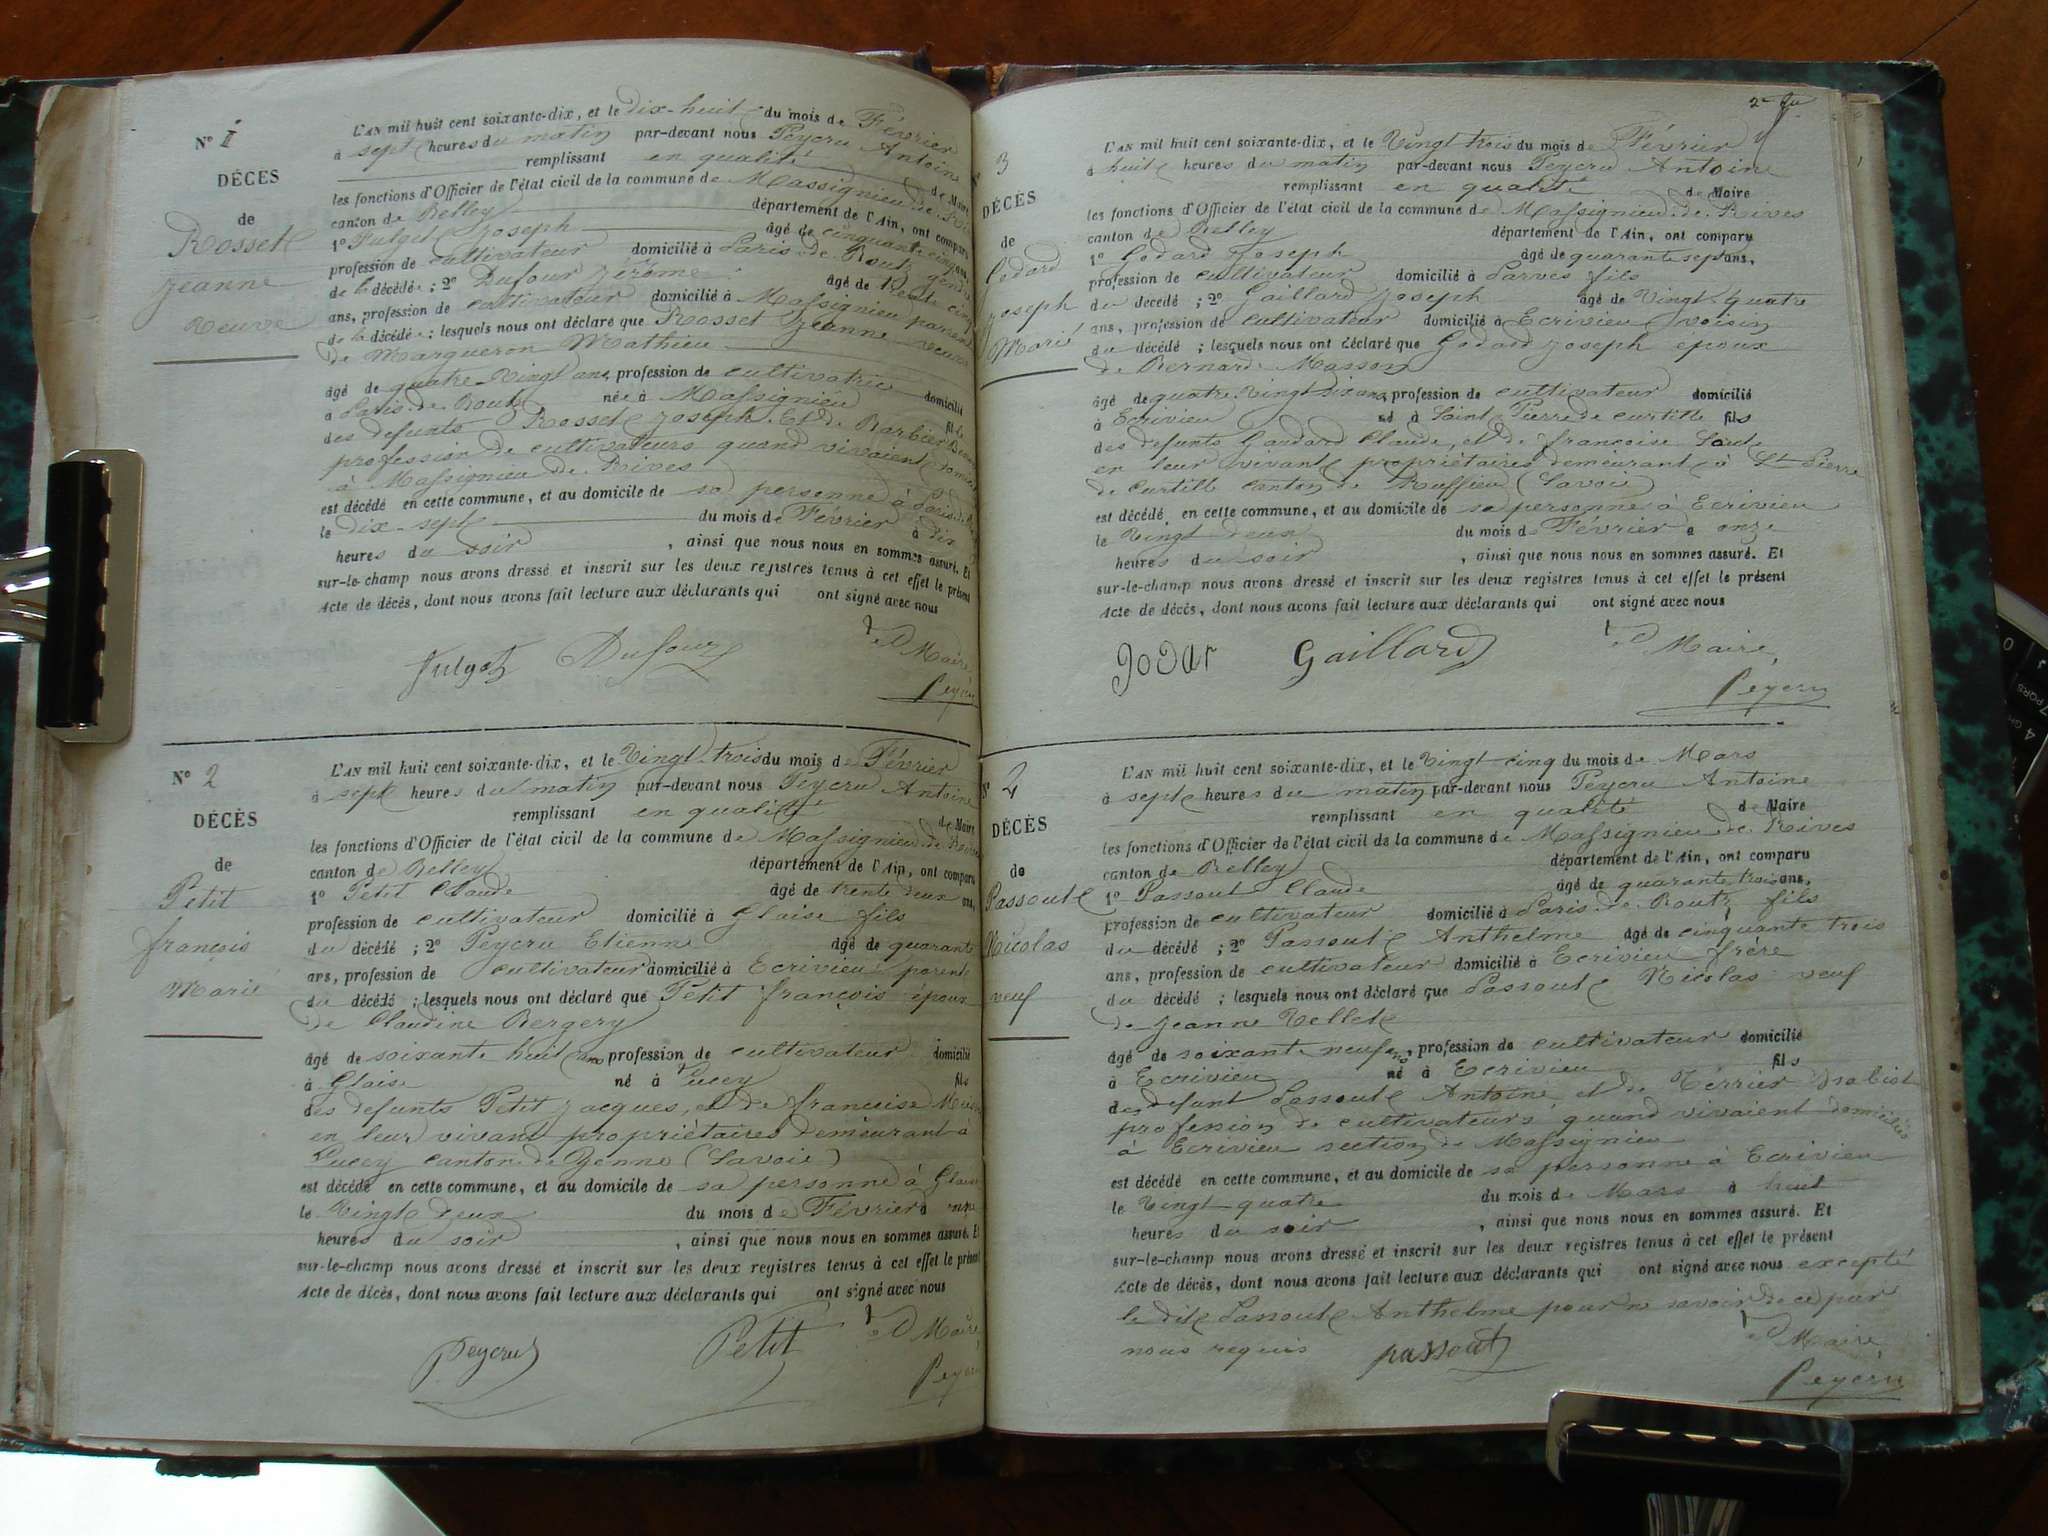 N° 1
DÉCES
de
Rosset
Jeanne
Veuve
L'AN mil huit cent soixante-dix, et le dix-huit du mois de Février
à sept heures du matin par-devant nous Peycru Antoine
remplissant en qualité de Maire
les fonctions d'Officier de l'état civil de la commune de Massignieu de Rives
canton de Belley département de l'Ain, ont comparu
1° Fulget Joseph âgé de cinquante cinq ans,
profession de cultivateur domicilié à Paris de Routz gendre
de la décédée ; 2° Dufour Jérôme âgé de trente cinq
ans, profession de cultivateur domicilié à Massignieu parent
de la décédée ; lesquels nous ont déclaré que Rosset Jeanne veuve
de Marqueron Mathieu
âgé de quatre-vingt ans, profession de cultivatrice domicilié
à Paris de Routz née à Massignieu fille
des défunts Rosset Joseph. Et de Barbier
profession de cultivateurs quand vivaient
à Massignieu de Rives
est décédé en cette commune, et au domicile de sa personne à Paris de
le dix-sept du mois de Février à dix
heures du soir, ainsi que nous nous en sommes assuré. Et
sur-le-champ nous avons dressé et inscrit sur les deux registres tenus à cet effet le présent
Acte de décès, dont nous avons fait lecture aux déclarants qui ont signé avec nous
Fulget Dufour Maire
Peycru
N° 2
DÉCÈS
de
Petit
françois
Marié
L'AN mil huit cent soixante-dix, et le Vingt-trois du mois de Février
à sept heures du matin par-devant nous Peycru Antoine
remplissant en qualité de Maire
les fonctions d'Officier de l'état civil de la commune de Massignieu de Rives
canton de Belley département de l'Ain, ont comparu
1° Petit Claude âgé de trente deux ans,
profession de cultivateur domicilié à Glaise fils
du décédé ; 2° Peycru Etienne âgé de quarante
ans, profession de cultivateur domicilié à Ecrivieu parent
du décédé ; lesquels nous ont déclaré que Petit françois époux
de Claudine Bergery
âgé de soixante huit ans profession de cultivateur domicilié
à Glaise né à Lucey fils
des défunts Petit Jacques, et de françoise
en leur vivant propriétaires demeurant à
Lucey canton de Yenne (Savoie)
est décédé en cette commune, et au domicile de sa personne à Glaise
le Vingt deux du mois de Février à onze
heures du soir, ainsi que nous nous en sommes assuré. Et
sur-le-champ nous avons dressé et inscrit sur les deux registres tenus à cet effet le présent
Acte de décès, dont nous avons fait lecture aux déclarants qui ont signé avec nous
Peycru Petit Maire
Peycru
3
DÉCÈS
de
Godard
Joseph
Marié
L'AN mil huit cent soixante-dix, et le Vingt trois du mois de Février
à huit heures du matin par-devant nous Peycru Antoine
remplissant en qualité de Maire
les fonctions d'Officier de l'état civil de la commune de Massignieu de Rives
canton de Belley département de l'Ain, ont comparu
1° Godard Joseph âgé de quarante sept ans,
profession de cultivateur domicilié à Parves fils
du décédé ; 2° Gaillard Joseph âgé de Vingt-quatre
ans, profession de cultivateur domicilié à Ecrivieu voisin
du décédé ; lesquels nous ont déclaré que Godard Joseph époux
de Bernarde Masson
âgé de quatre Vingt dix ans, profession de cultivateur domicilié
à Ecrivieu né à Saint Pierre de curtille fils
des défunts Gaudard Claude, et de françoise
en leur vivant propriétaires demeurant à St Pierre
de Curtille canton de Ruffieu (Savoie)
est décédé en cette commune, et au domicile de sa personne à Ecrivieu
le Vingt deux du mois de Février à onze
heures du soir, ainsi que nous nous en sommes assuré. Et
sur-le-champ nous avons dressé et inscrit sur les deux registres tenus à cet effet le présent
Acte de décès, dont nous avons fait lecture aux déclarants qui ont signé avec nous
Godar Gaillard Maire
Peycru
N° 2
DÉCÈS
de
Passout
Nicolas
veuf
L'AN mil huit cent soixante-dix, et le Vingt-cinq du mois de Mars
à sept heures du matin par-devant nous Peycru Antoine
remplissant en qualité de Maire
les fonctions d'Officier de l'état civil de la commune de Massignieu de Rives
canton de Belley département de l'Ain, ont comparu
1° Passout Claude âgé de quarante trois ans,
profession de cultivateur domicilié à Paris de Routz fils
du décédé ; 2° Passout Anthelme âgé de cinquante trois
ans, profession de cultivateur domicilié à Ecrivieu frère
du décédé ; lesquels nous ont déclaré que Passout Nicolas veuf
de Jeanne Vellet
âgé de soixante neuf ans, profession de cultivateur domicilié
à Ecrivieu né à Ecrivieu fils
des défunt Passout Antoine et de Térrier
profession de cultivateurs quand vivaient domiciliés
à Ecrivieu section de Massignieu
est décédé en cette commune, et au domicile de sa personne à Ecrivieu
le Vingt-quatre du mois de Mars à huit
heures du soir, ainsi que nous nous en sommes assuré. Et
sur-le-champ nous avons dressé et inscrit sur les deux registres tenus à cet effet le présent
Acte de décès, dont nous avons fait lecture aux déclarants qui ont signé avec nous excepté
le dit Passout Anthelme pour ne savoir de ce par
nous requis passout Maire
Peycru